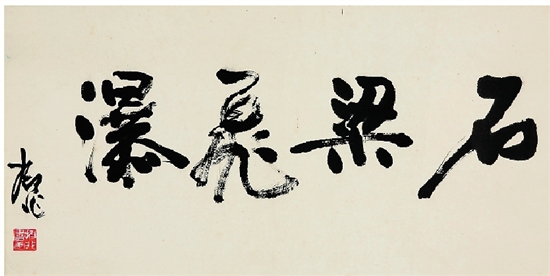 石梁飛瀑